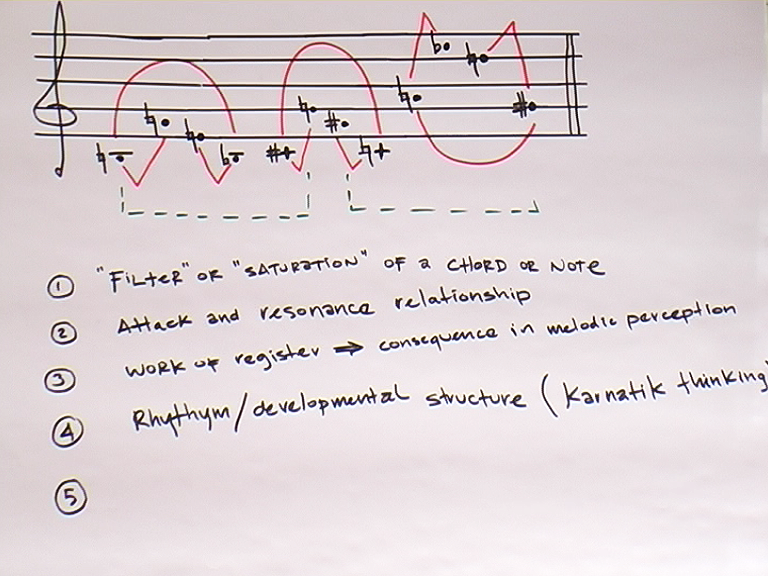 ① "FILTER" OR "SATURATION" OF A CHORD OR NOTE
② Attack and resonance relationship
③ WORK OF register ⇒ consequence in melodic perception
④ Rhythym/developmental structure (Karnatik thinking)
⑤